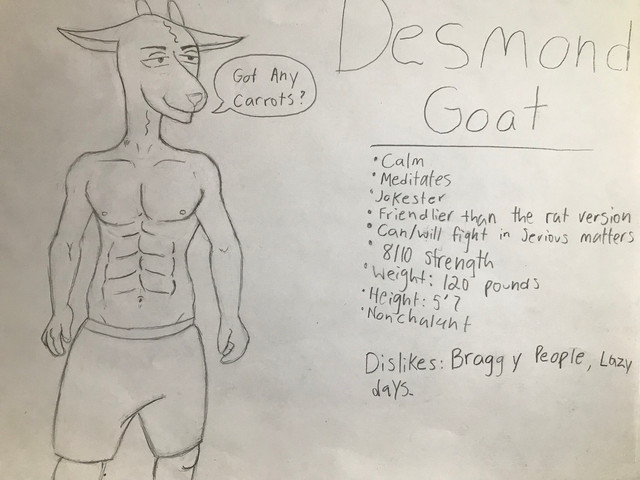 Desmond
Goat
Got Any
Carrots?
• Calm
• Meditates
• Jokester
• Friendlier than the rat version
• Can/will fight in Serious matters
• 8/10 strength
• Weight: 120 pounds
• Height: 5'7
• Nonchalant
Dislikes: Braggy People, Lazy
days.